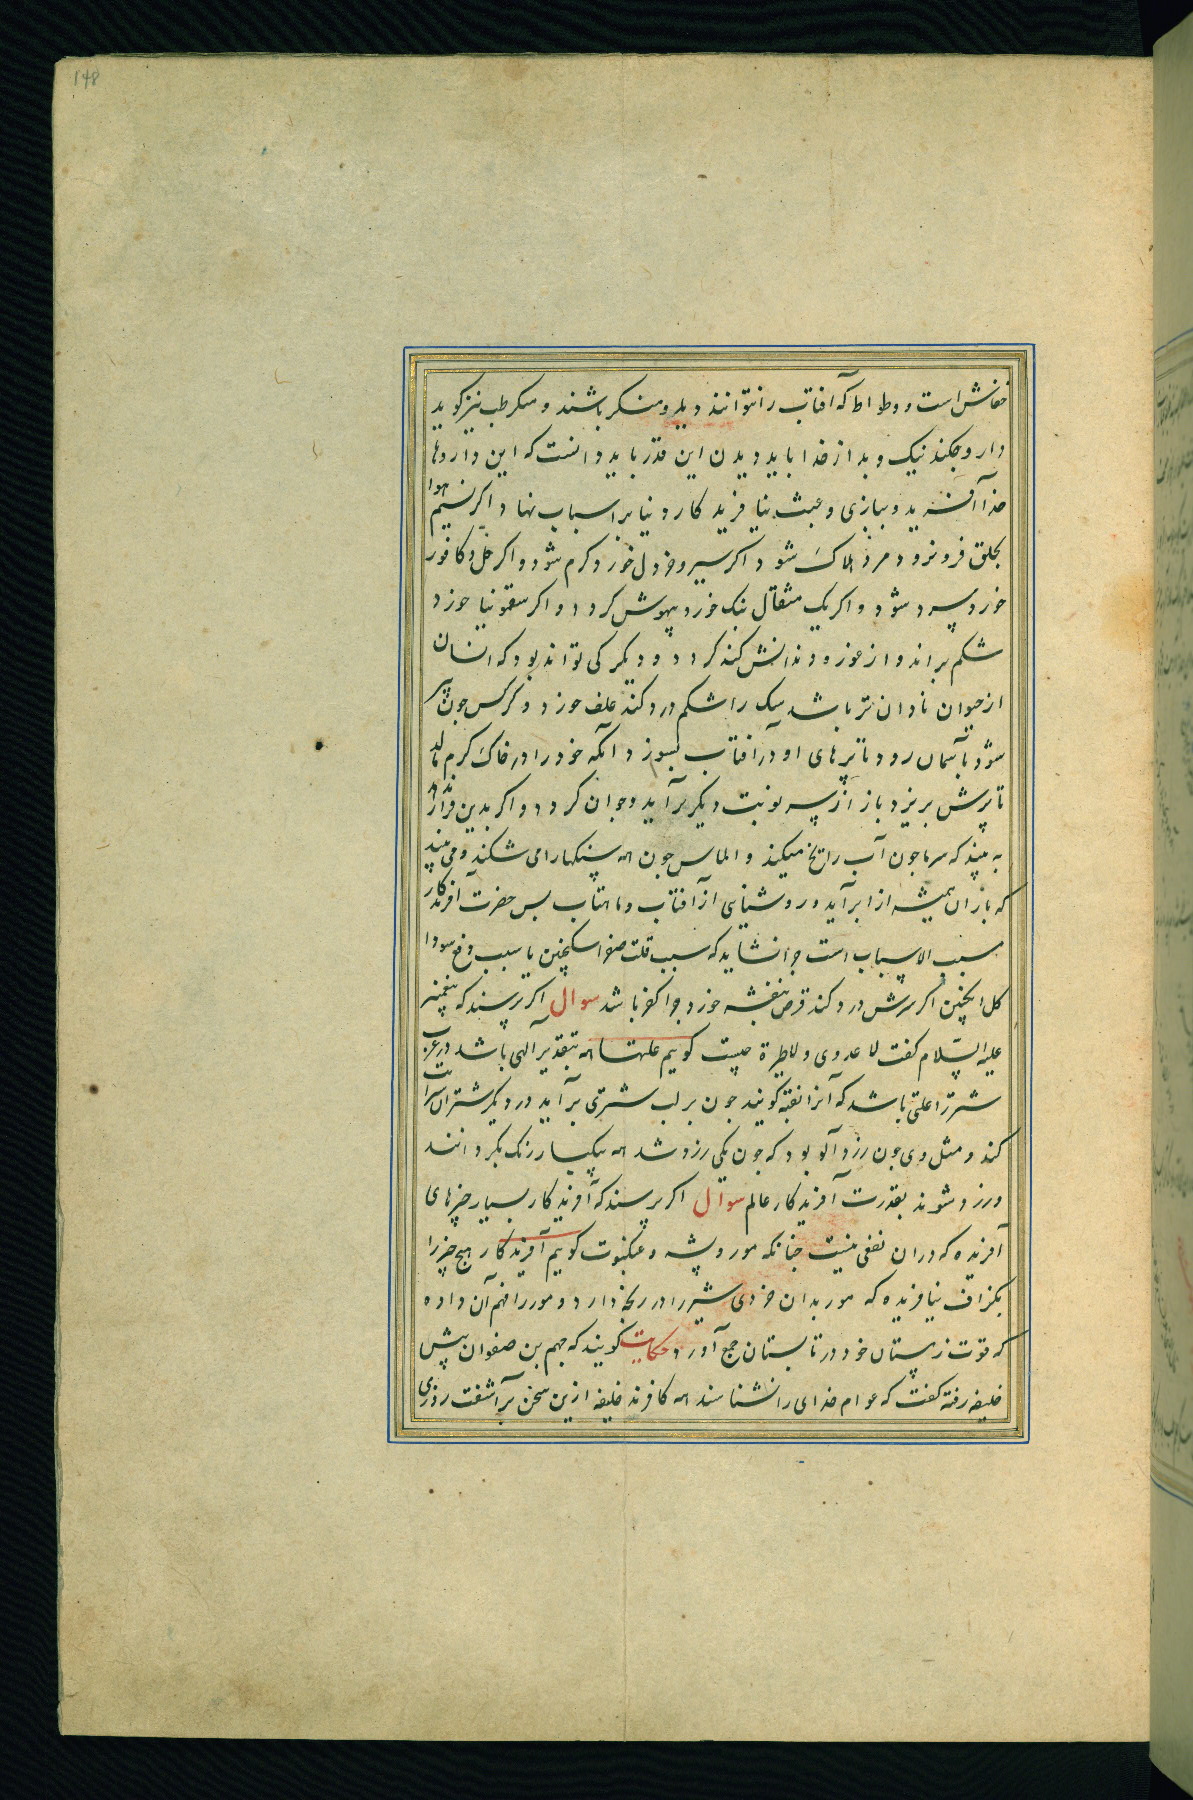 148
خفاش است و وطواط که آفتاب را نتوانند دید و منکر باشند و منکر طب نیز کوید
دارو چکند نیک و بد از خدا باید دیدن این قدر باید دانست که این داروها
خدا آفرید و ببازی و عبث نیافرید کار دنیا بر اسباب نهاد اکر نسیم هوا
بحلق فرو نرود مرد هلاک شود اکر سیر و خردل خورد کرم شود و اکر خل و کافور
خورد سرد شود و اکر یک مثقال بنک خورد بیهوش کردد و اکر سقمونیا خورد
شکم براند و از غوره دندانش کند کردد و دیکر کی تواند بود که انسان
از حیوان نادان تر باشد سک را شکم درد کند علف خورد و کرکس چون پیر
شود بآسمان رود تا پرهای او در آفتاب بسوزد آنکه خود را در خاک کرم مالد
تا پرش بریزد باز از سر نوبت دیکر برآید و جوان کردد و اکر بدین قرار ندهد
به بیند که سرما چون آب را یخ میکند و الماس چون همه سنکها را می شکند و می بیند
که باران همیشه از ابر آید و روشنایی از آفتاب و ماهتاب پس حضرت آفریدکار
مسبب الاسباب است چرا نشاید که سبب قلت صفرا سکنجبین یا سبب دفع سودا
کل انکبین اکر سرش درد کند قرص بنفشه خورد چرا کفر باشد سوال اکر پرسند که پیغمبر
علیه السلام کفت لا عدوی و لا طیرة چیست کوییم علتها همه بتقدیر الهی باشد در عرب
شتر را علتی باشد که آنرا نقبه کویند چون بر لب شتری برآید در دیکر شتران سرایت
کند و مثل وی چون زردآلو بود که چون یکی زرد شد همه بیکبار رنک بکردانند
و زرد شوند بقدرت آفریدکار عالم سوال اکر پرسند که آفریدکار بسیار چیزهای
آفریده که در آن نفعی نیست چنانکه مور و پشه و عنکبوت کوییم آفریدکار هیچ چیز را
بکزاف نیافریده که مور بدان خردی شیر را در رنجه دارد و مور را فهم آن داده
که قوت زمستان خود در تابستان جمع آورد حکایت کویند که جهم بن صفوان پیش
خلیفه رفته کفت که عوام خدای را نشناسند همه کافرند خلیفه ازین سخن برآشفت روزی